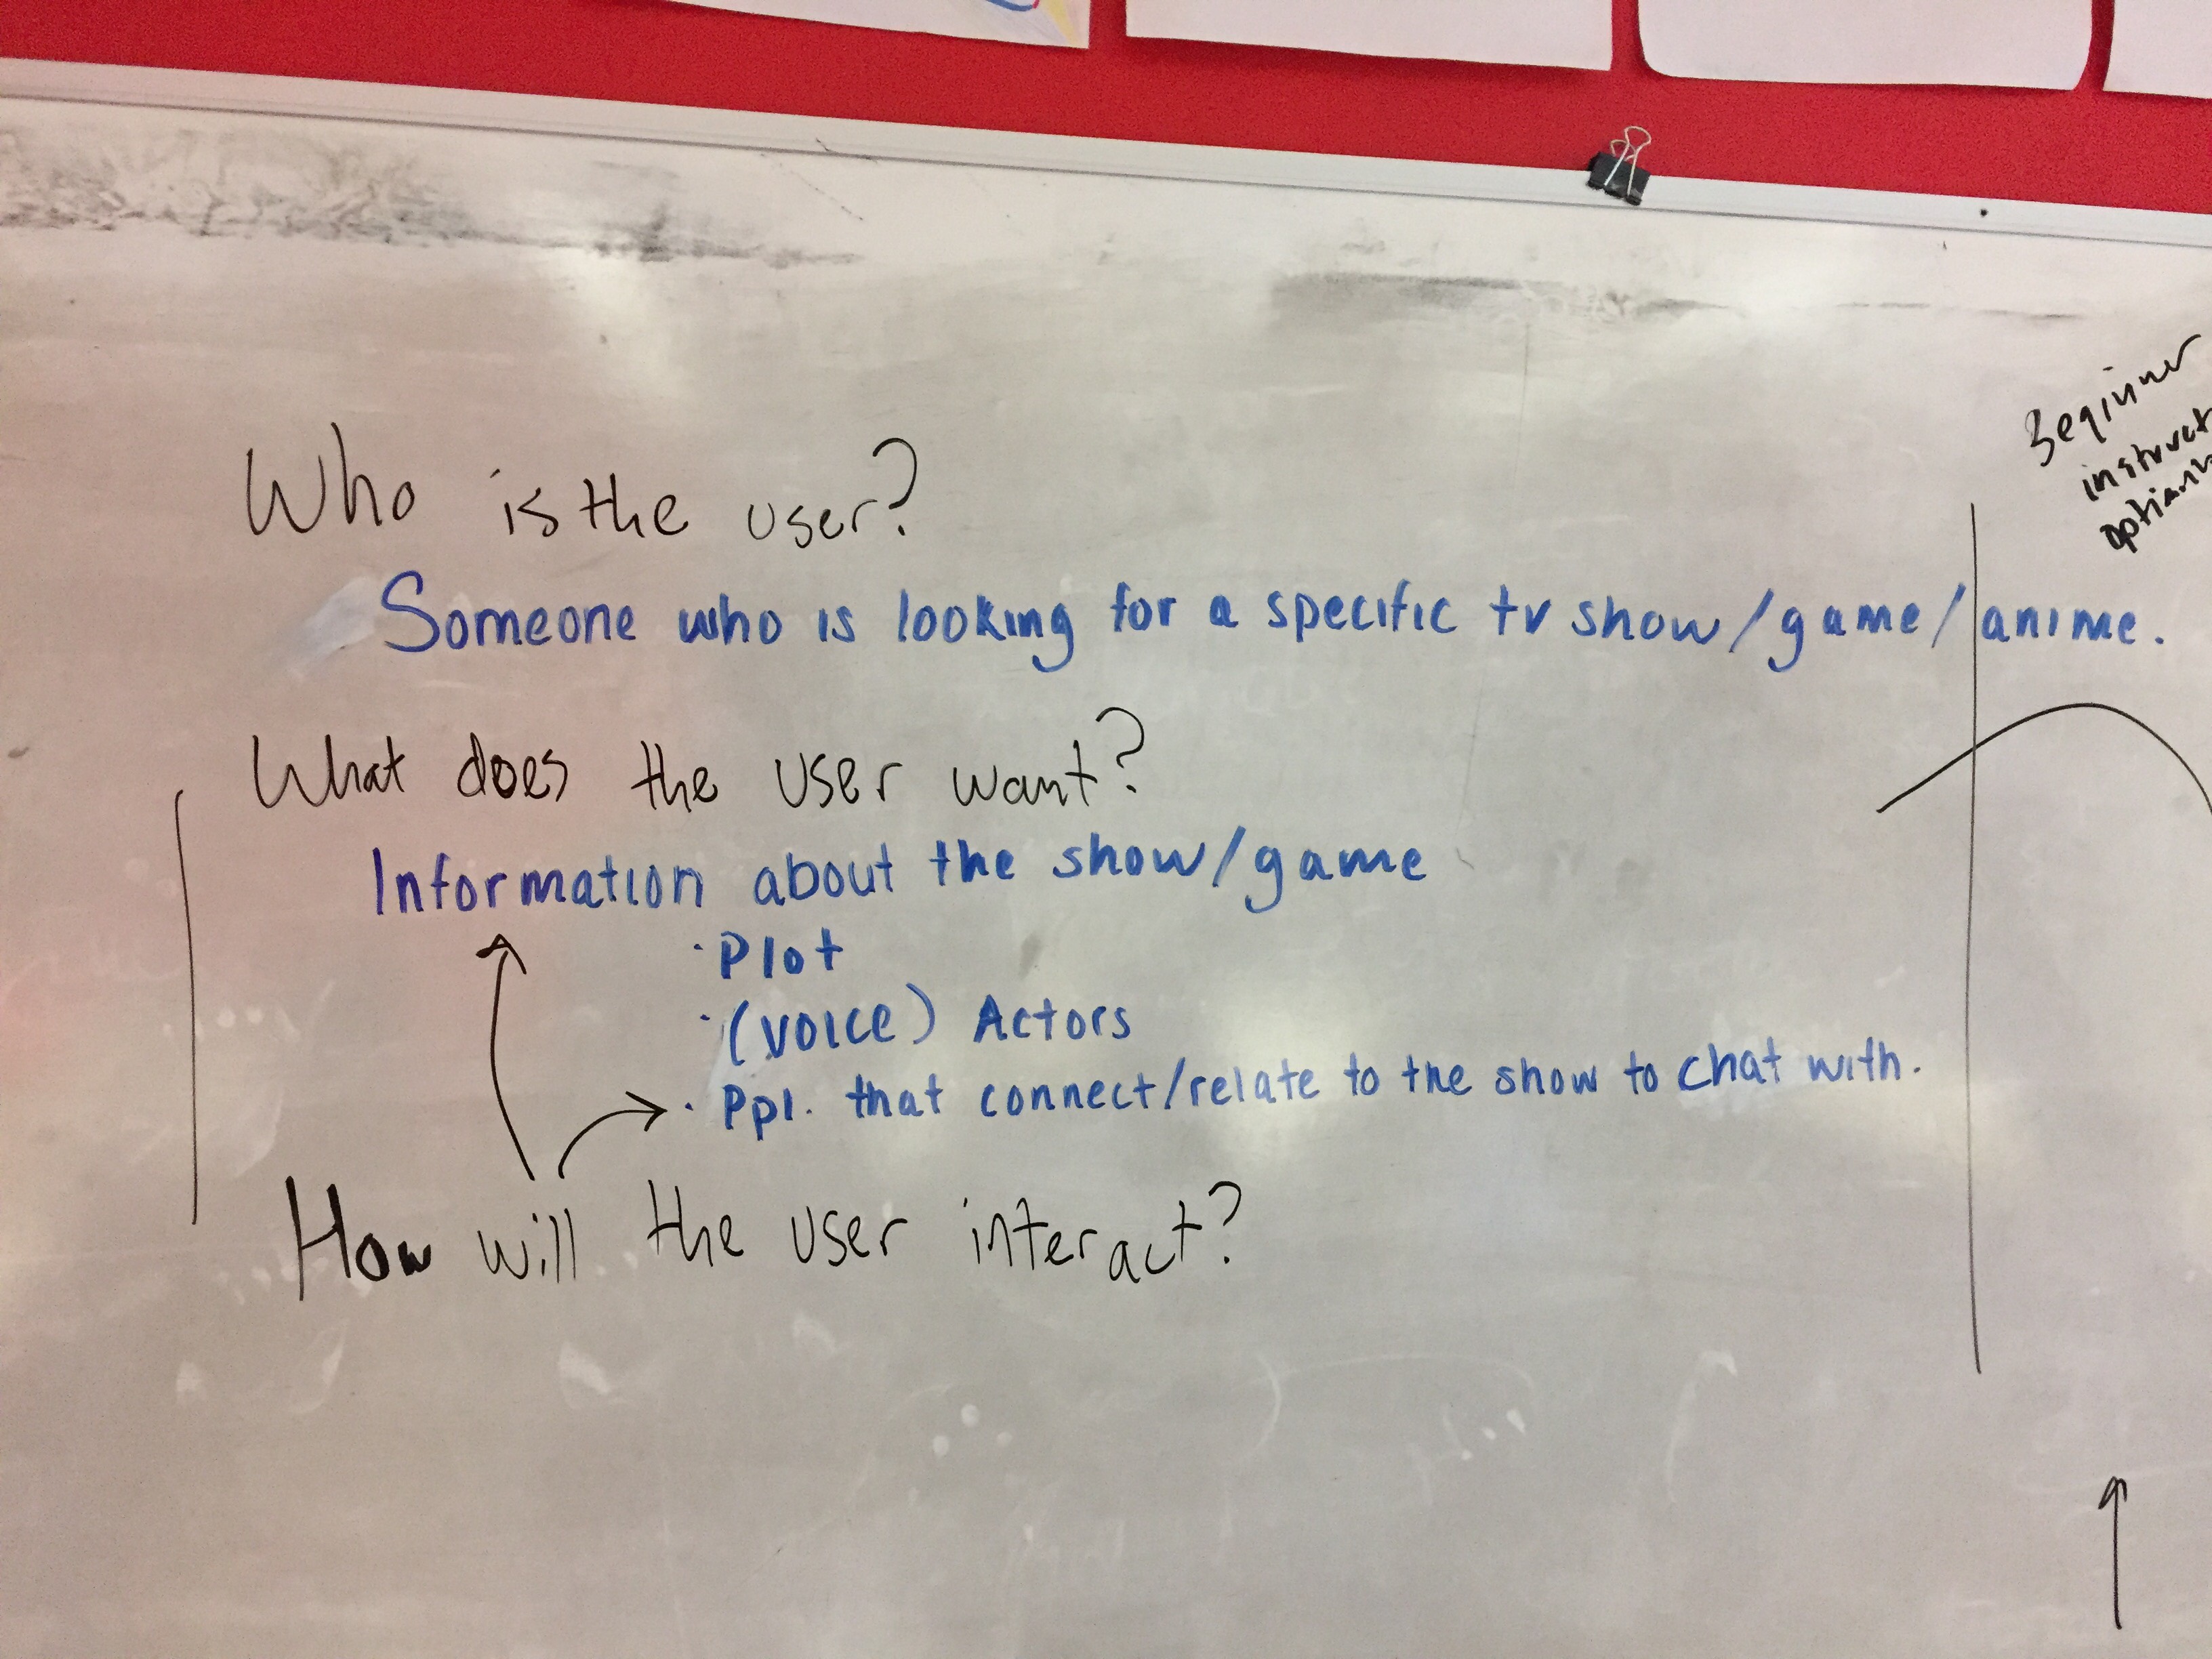 Who is the user?
Someone who is looking for a specific tv show/game/anime.
What does the user want?
Information about the show/game
· plot
· (voice) Actors
· ppl. that connect/relate to the show to chat with.
How will the user interact?
Beginner
instruct
options